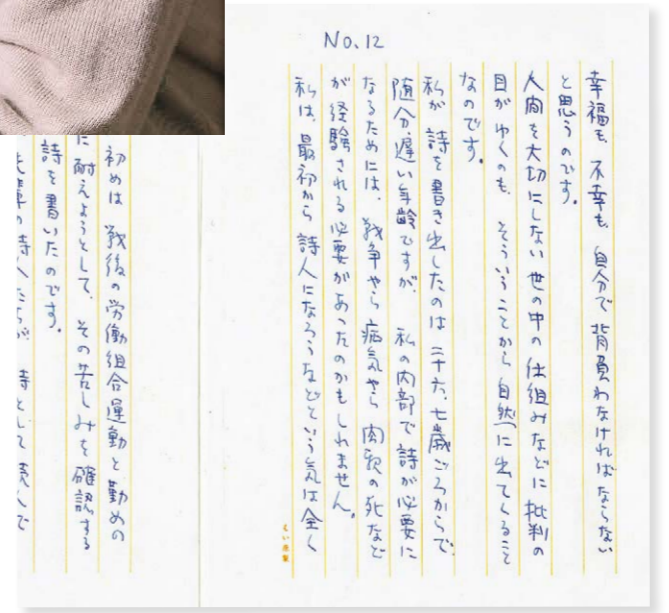 No.12
幸福も、不幸も、自分で背負わなければならない
と思うのです。
人間を大切にしない世の中の仕組みなどに批判の
目がゆくのも、そういうことから自然に出てくること
なのです。
私が詩を書き出したのは二十六、七歳ごろからで、
随分遅い年齢ですが、私の内部で詩が必要に
なるためには、戦争やら病気やら肉親の死など
が経験される必要があったのかもしれません。
私は、最初から詩人になろうなどという気は全く
初めは戦後の労働組合運動と勤めの
に耐えようとして、その苦しみを確認する
詩を書いたのです。
先輩の詩人たちが、詩として読んで